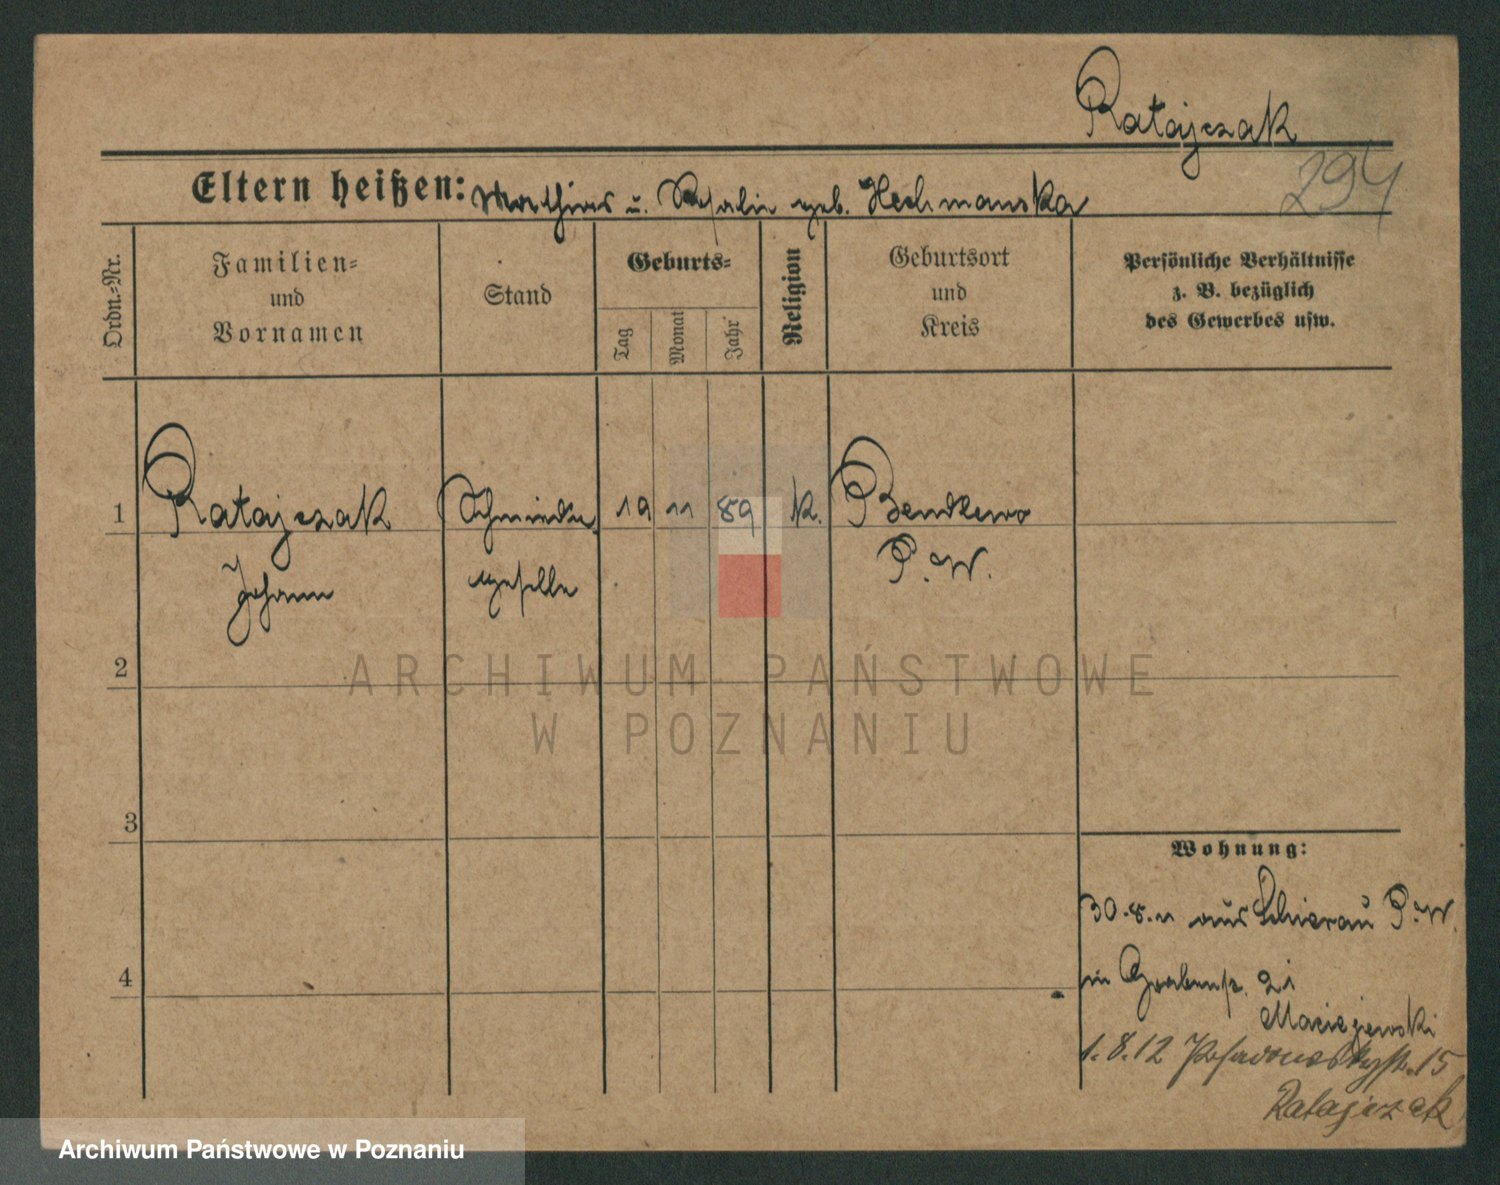 Ratajczak
294
Eltern heißen: Mathias u. Rosalie geb. Heclmanska
Ordn.-Nr.
Familien-
und
Vornamen
Stand
Geburts-
Tag
Monat
Jahr
Religion
Geburtsort
und
Kreis
Persönliche Verhältnisse
z. B. bezüglich
des Gewerbes usw.
1 Ratajczak Schmiede 19 11 89 k. Bendlewo
Johann geselle P. W.
2
3
4
Wohnung:
30.8.11 aus Schierau P. W.
in Grabenstr. 21
Maciejewski
1.8.12 15
Ratajczak
ARCHIWUM PAŃSTWOWE
W POZNANIU
Archiwum Państwowe w Poznaniu